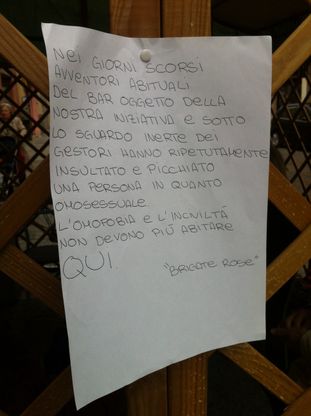 NEI GIORNI SCORSI
AVVENTORI ABITUALI
DEL BAR OGGETTO DELLA
NOSTRA INIZIATIVA E SOTTO
LO SGUARDO INERTE DEI
GESTORI HANNO RIPETUTAMENTE
INSULTATO E PICCHIATO
UNA PERSONA IN QUANTO
OMOSESSUALE.
L'OMOFOBIA E L'INCIVILTÁ
NON DEVONO PIÚ ABITARE
QUI.
"BRIGATE ROSE"